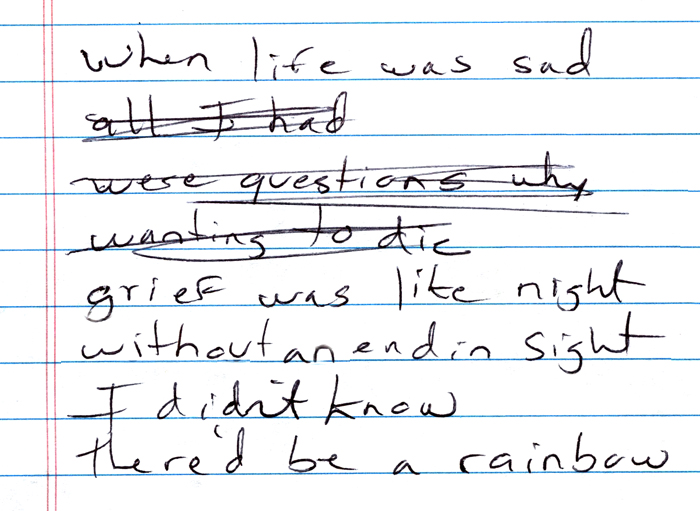 when life was sad
all I had
were questions why
wanting to die
grief was like night
without an end in sight
I didn't know
there'd be a rainbow